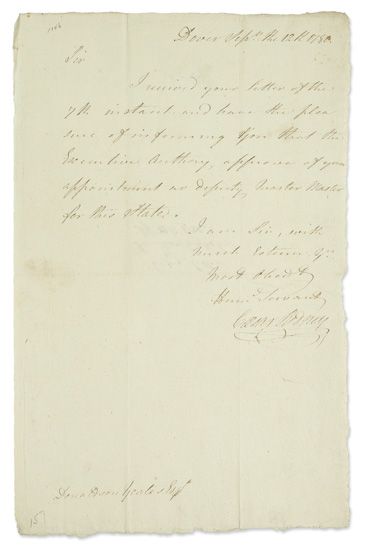 Dover Sepr. the 12th 1780
Sir
I received your letter of the
7th instant and have the plea
sure of informing you that the
Executive Authory, approves of your
appointment as Deputy Muster Master
for this State.
I am Sir, with
much Esteem Yr.
Most Obedt
Humb. Servant
Caesar Rodney
Donaldson Yeates Esqr.
15